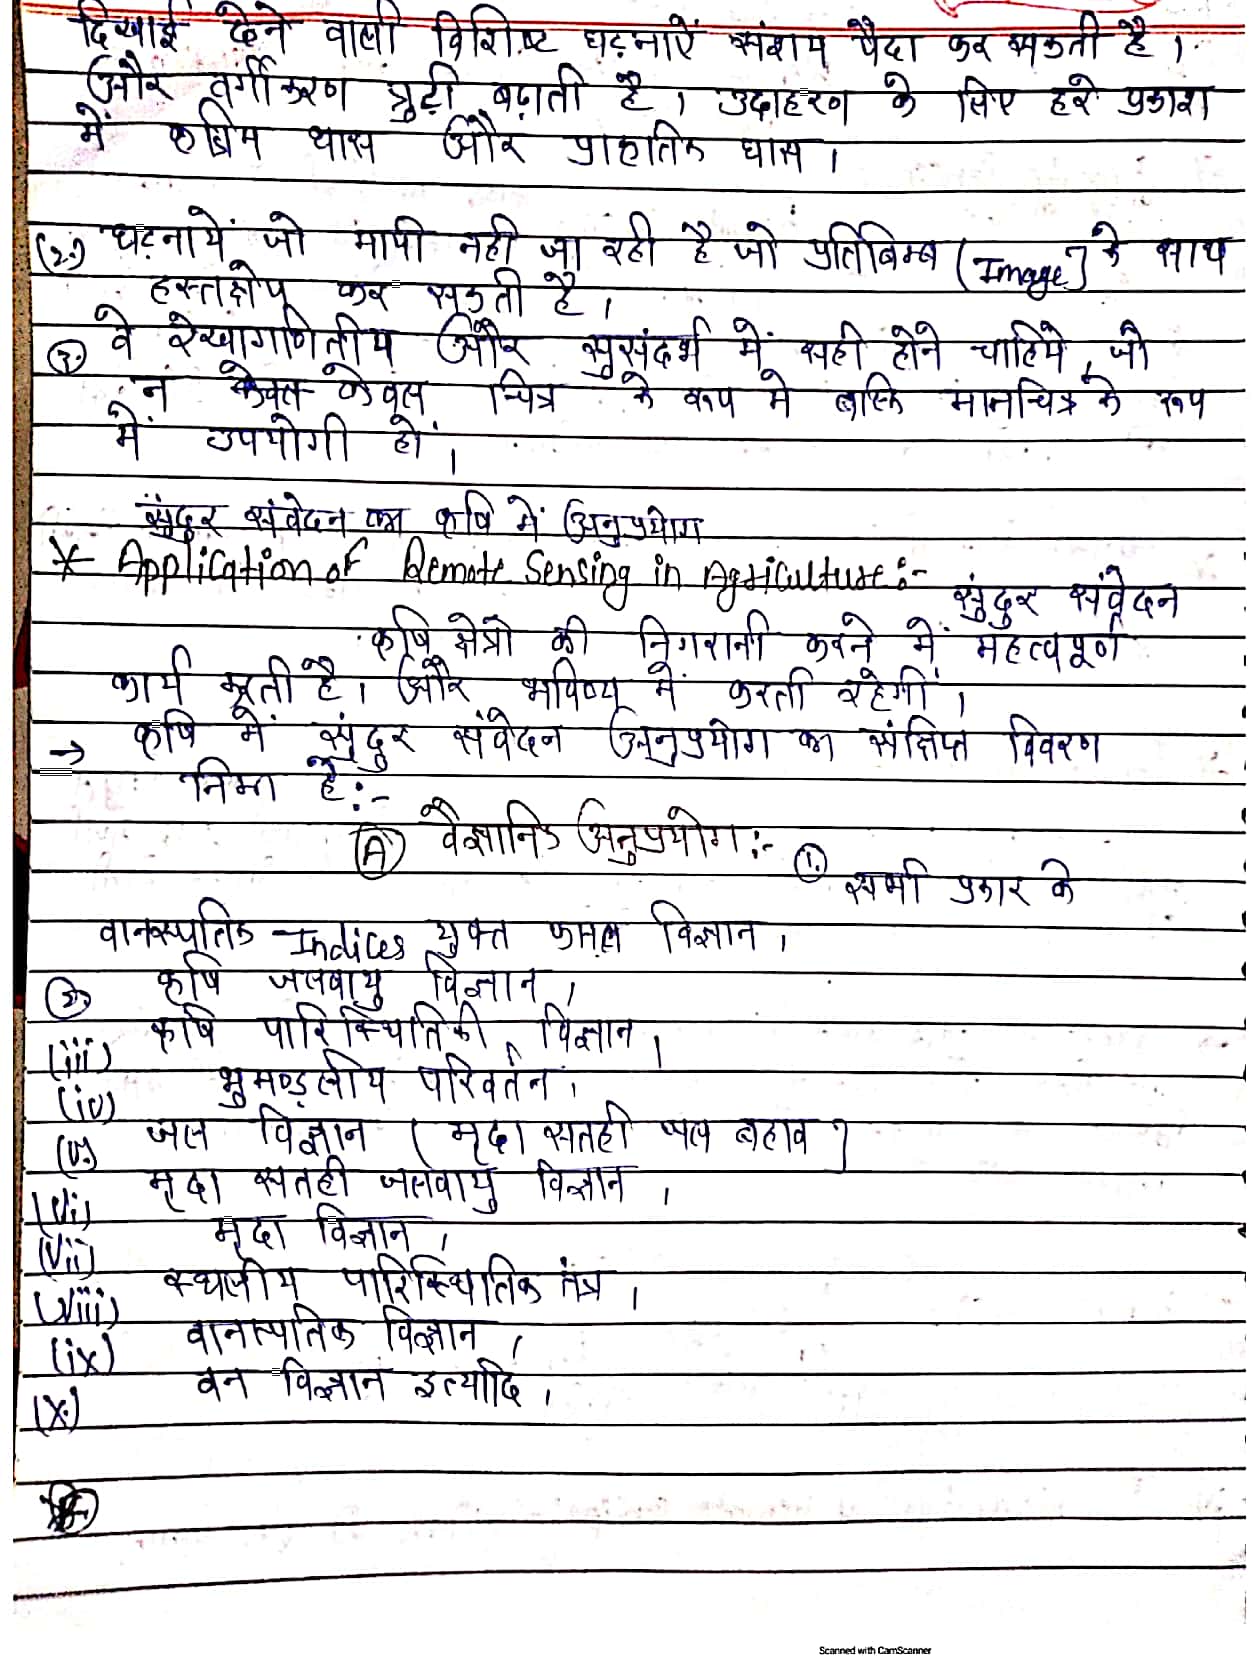 दिखाई देने वाली विशिष्ट घटनाऐं संशय पैदा कर सकती है।
और वर्गीकरण त्रुटी बढ़ाती है। उदाहरण के लिए हरे प्रकाश
में कृत्रिम घास और प्राकृतिक घास।
(2.) घटनायें जो मापी नही जा रही है जो प्रतिबिम्ब (Image) के साथ
हस्तक्षेप कर सकती है।
(3.) वे रेखागणितीय और सुसंदर्भ में सही होने चाहिये, जो
न केवल केवल चित्र के रूप मे बल्कि मानचित्र के रूप
में उपयोगी हों।
सुंदुर संवेदन का कृषि में अनुप्रयोग
* Application of Remote Sensing in Agriculture:-
सुंदुर संवेदन
कृषि क्षेत्रो की निगरानी करने में महत्वपूर्ण
कार्य करती है। और भविष्य में करती रहेगी।
→ कृषि में सुंदुर संवेदन अनुप्रयोग का संक्षिप्त विवरण
निम्न है:-
(A) वैज्ञानिक अनुप्रयोग:- (1.)
सभी प्रकार के
वानस्पतिक Indices युक्त फसल विज्ञान।
(2.) कृषि जलवायु विज्ञान।
(iii) कृषि पारिस्थितिकी विज्ञान।
(iv) भुमण्ड़लीय परिवर्तन।
(v.) जल विज्ञान (मृदा सतही जल बहाव)
(vi) मृदा सतही जलवायु विज्ञान।
(vii) मृदा विज्ञान।
(viii) स्थलीय पारिस्थितिक तंत्र।
(ix) वानस्पतिक विज्ञान।
(x.) वन विज्ञान इत्यादि।
Scanned with CamScanner